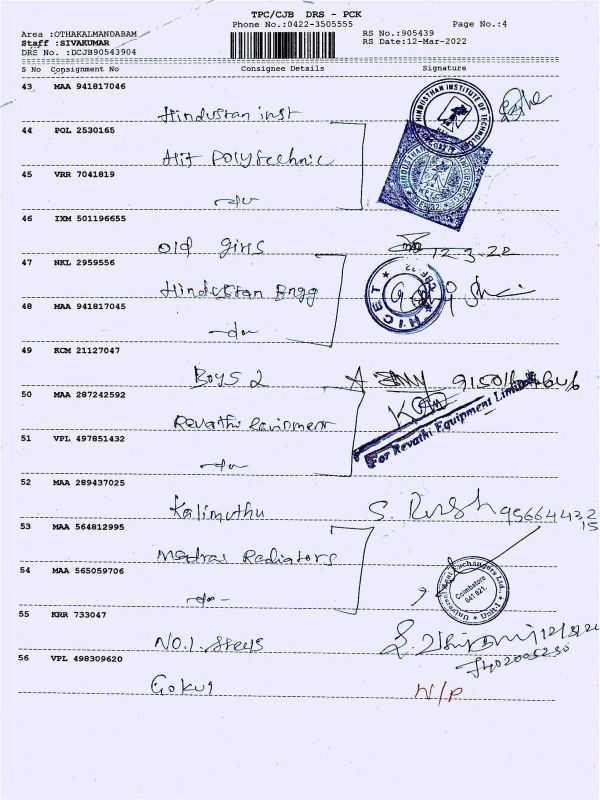 TPC/CJB DRS - PCK
Phone No.:0422-3505555
Page No.:4
Area :OTHAKALMANDABAM
RS No.:905439
Staff :SIVAKUMAR
RS Date:12-Mar-2022
DRS No. :DCJB90543904
S No Consignment No Consignee Details Signature
43 MAA 941817046
Hindustan inst
44 POL 2530165
Hit Polytechnic
45 VRR 7041819
-do-
46 IXM 501196655
Old girls
12-3-22
47 NKL 2959556
Hindustan Engg
HICET
48 MAA 941817045
-do-
49 KCM 21127047
Boys 2
50 MAA 287242592
Revathi Equipment
For Revathi Equipment Limited
51 VPL 497851432
-do-
52 MAA 289437025
Kalimuthu
53 MAA 564812995
Madras Radiators
54 MAA 565059706
-do-
Universal Heat Exchangers Ltd.,
Coimbatore
641 021.
55 KRR 733047
NO.1. Steels
56 VPL 498309620
Gokul
N/P